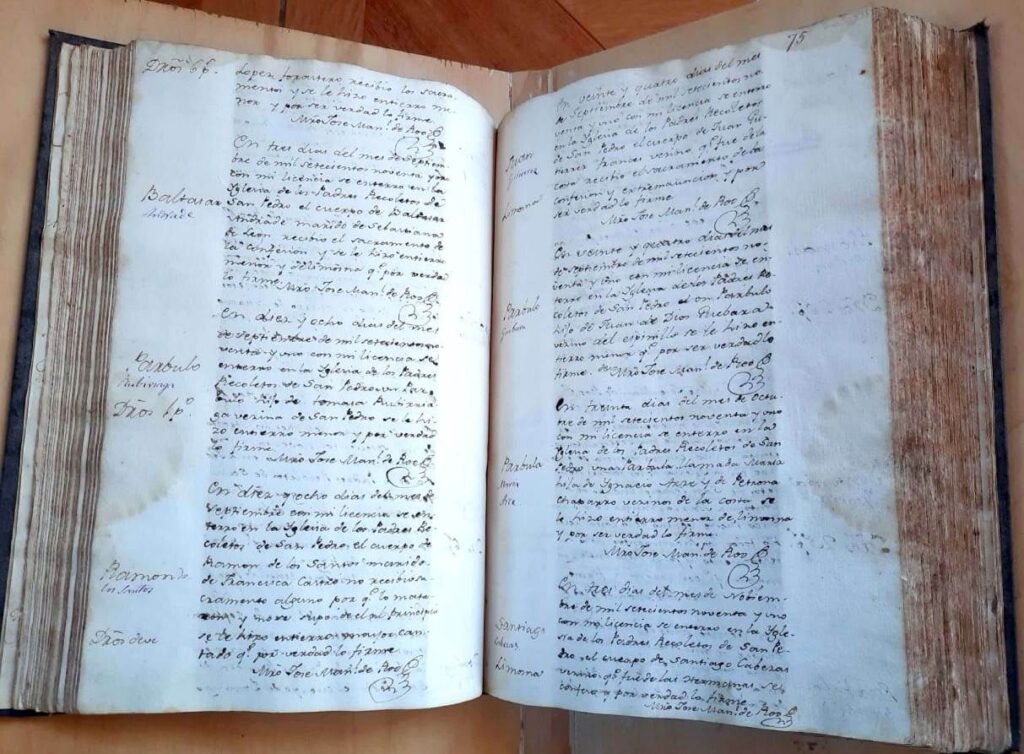 Dros. pp.
Lopez forastero recibio los sacra-
mentos y se le hizo entierro me-
nor y por ser verdad lo firme
Mro Jose Manl. de Roo
Baltasar
Andrade
En tres dias del mes de Septiem-
bre de mil setecientos noventa y uno
con mi licencia se enterro en la
Yglesia de los Padres Recoletos de
San Pedro el cuerpo de Baltasar
Andrade marido de Sebastiana
de Leon, recibio el sacramento de
la confesion y se le hizo entierro
menor y de limosna qe. por verdad
lo firme Mro Jose Manl. de Roo
Parbulo
Dros. pp.
En diez y ocho dias del mes
de septiembre de mil setecientos no
venta y uno con mi licencia se
enterro en la Yglesia de los Padres
Recoletos de San Pedro un Par-
bulo hijo de tomasa
vezina de San Pedro se le hi-
zo entierro menor y por verdad
lo firme
Mro Jose Manl. de Roo
Ramon de
los Santos
Dros. deve
En diez y ocho dias del mes de
Septiembre con mi licencia se en-
terro en la Yglesia de los Padres Re-
coletos de San Pedro el cuerpo de
Ramon de los Santos marido
de Francisca Castro no recibio sa-
cramento alguno por qe. lo mata-
ron y
se le hizo entierro mayor can-
tado qe. por verdad lo firme
Mro Jose Manl. de Roo
75
Juan
Limosna
En veinte y quatro dias del mes
de Septiembre de mil setecientos no
venta y uno con mi licencia se enterro
en la Yglesia de los Padres Recoletos
de San Pedro el cuerpo de Juan Gu-
tierrez frances vezino qe. fue de la
costa recibio el sacramento de la
confesion y extremauncion, y por
ser verdad lo firme
Mro Jose Manl. de Roo
Parbulo
Guebara
En veinte y quatro dias del mes
de septiembre de mil setecientos no-
venta y uno con mi licencia se en-
terro en la Yglesia de los Padres Re-
coletos de San Pedro un Parbulo
hijo de Juan de Dios Guebara
vezino del espinillo se le hizo en-
tierro menor qe. por ser verdad lo
firme. Mro Jose Manl. de Roo
Parbula
Maria
En treinta dias del mes de Octu-
bre de mil setecientos noventa y uno
con mi licencia se enterro en la
Yglesia de los Padres Recoletos de San
Pedro una Parbula llamada Maria
hija de Ignacio y de Petrona
Chaparro vezinos de la costa se
le hizo entierro menor de limosna
y por ser verdad lo firme
Mro Jose Manl. de Roo
Santiago
Limosna
En tres dias del mes de Nobiem-
bre de mil setecientos noventa y uno
con mi licencia se enterro en la Ygle-
sia de los Padres Recoletos de San Pe-
dro el cuerpo de Santiago Caberas
vezino qe. fue de las Hermanas, se
confeso y por verdad lo firme
Mro Jose Manl. de Roo